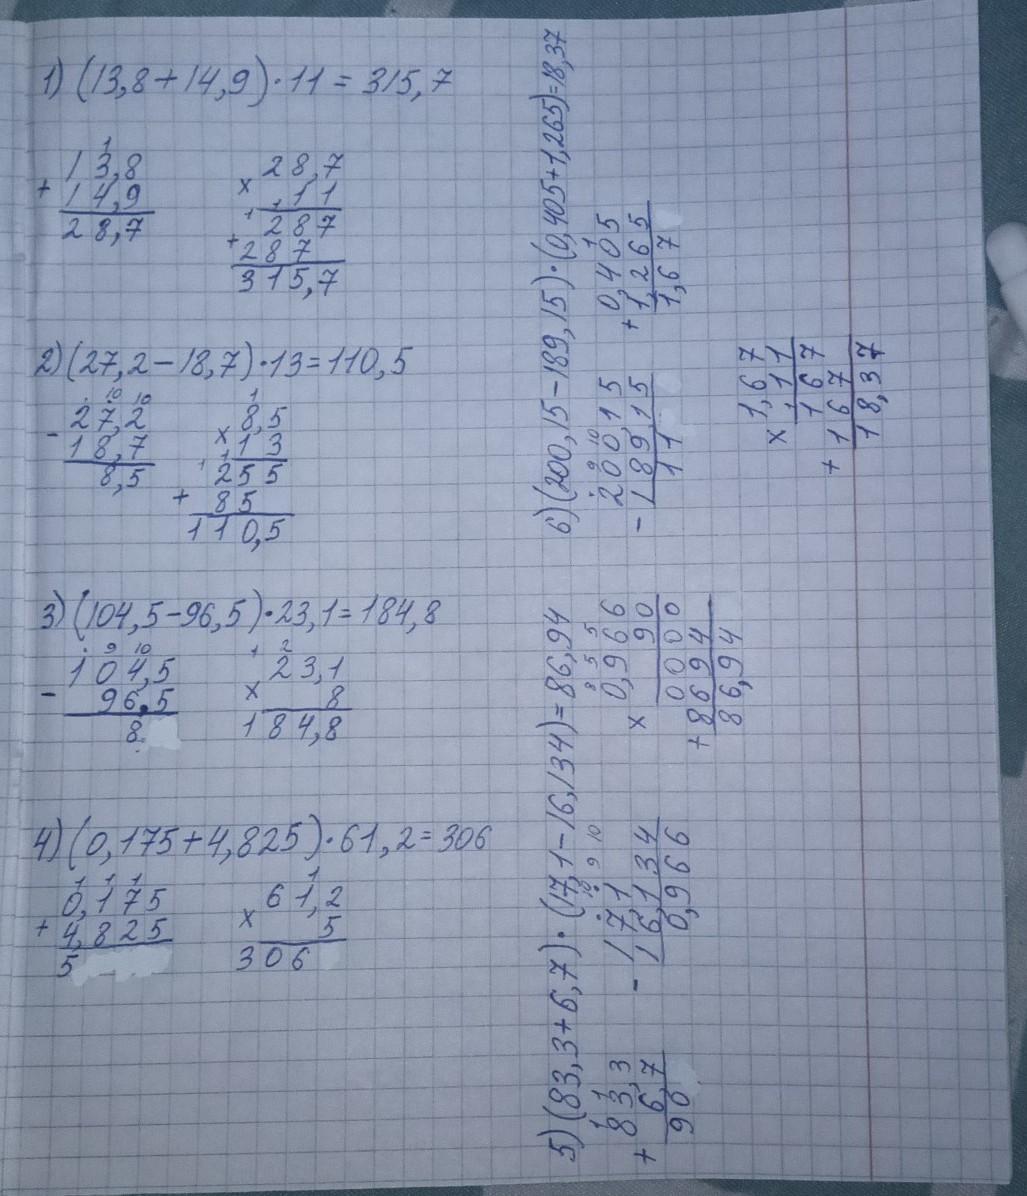 1) (13,8+14,9)·11=315,7
1
+ 13,8
14,9
28,7
× 28,7
11
1 1
287
+ 287
315,7
2) (27,2-18,7)·13=110,5
· 10 10
- 27,2
18,7
8,5
1
× 8,5
13
1 1
255
+ 85
110,5
3) (104,5-96,5)·23,1=184,8
· 9 10
- 104,5
96,5
8
1 2
× 23,1
8
184,8
4) (0,175+4,825)·61,2=306
1 1 1
+ 0,175
4,825
5
1
× 61,2
5
306
5) (83,3+6,7)·(17,1-16,134)=86,94
1 1
+ 83,3
6,7
90
· 10 9 10
- 17,1
16,134
0,966
8 5 5
× 0,966
90
0000
+ 8694
86,94
6) (200,15-189,15)·(0,405+1,265)=18,37
· 9 10
- 200,15
189,15
11
1
+ 0,405
1,265
1,67
× 1,67
11
1
167
+ 167
18,37